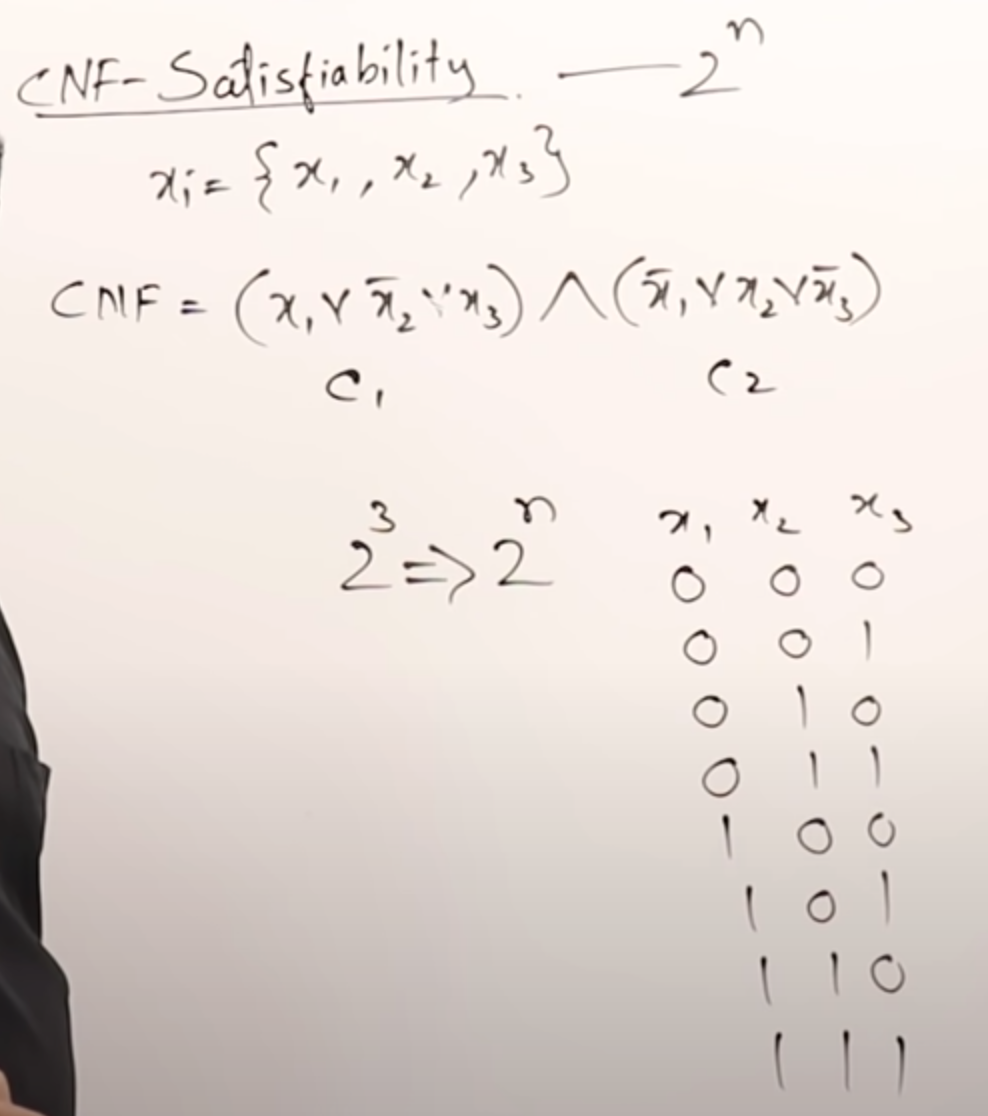 CNF-Satisfiability. — 2ⁿ
xᵢ = {x₁, x₂, x₃}
CNF = (x₁ ∨ x̄₂ ∨ x₃) ∧ (x̄₁ ∨ x₂ ∨ x̄₃)
C₁ C₂
2³ => 2ⁿ
x₁ x₂ x₃
0 0 0
0 0 1
0 1 0
0 1 1
1 0 0
1 0 1
1 1 0
1 1 1